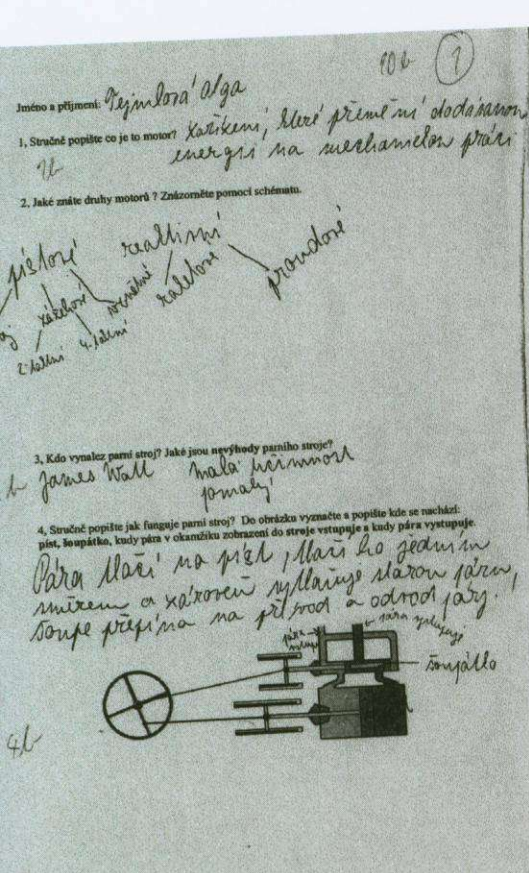 10b 1
Jméno a příjmení: Tejmlová Olga
1, Stručně popište co je to motor? Zařízení, které přemění dodávanou
energii na mechanickou práci
2, Jaké znáte druhy motorů ? Znázorněte pomocí schématu.
pístové reaktivní
zážehové vznětné raketové proudové
2-taktní 4-taktní
3, Kdo vynalez parní stroj? Jaké jsou nevýhody parního stroje?
James Watt malá účinnost
pomalý
4, Stručně popište jak funguje parní stroj? Do obrázku vyznačte a popište kde se nachází:
píst, šoupátko, kudy pára v okamžiku zobrazení do stroje vstupuje a kudy pára vystupuje.
Pára tlačí na píst, tlačí ho jedním
směrem a zároveň vytlačuje starou páru,
šoupě přepíná na přívod a odvod páry.
pára vstupuje pára vystupuje
šoupátko
4b